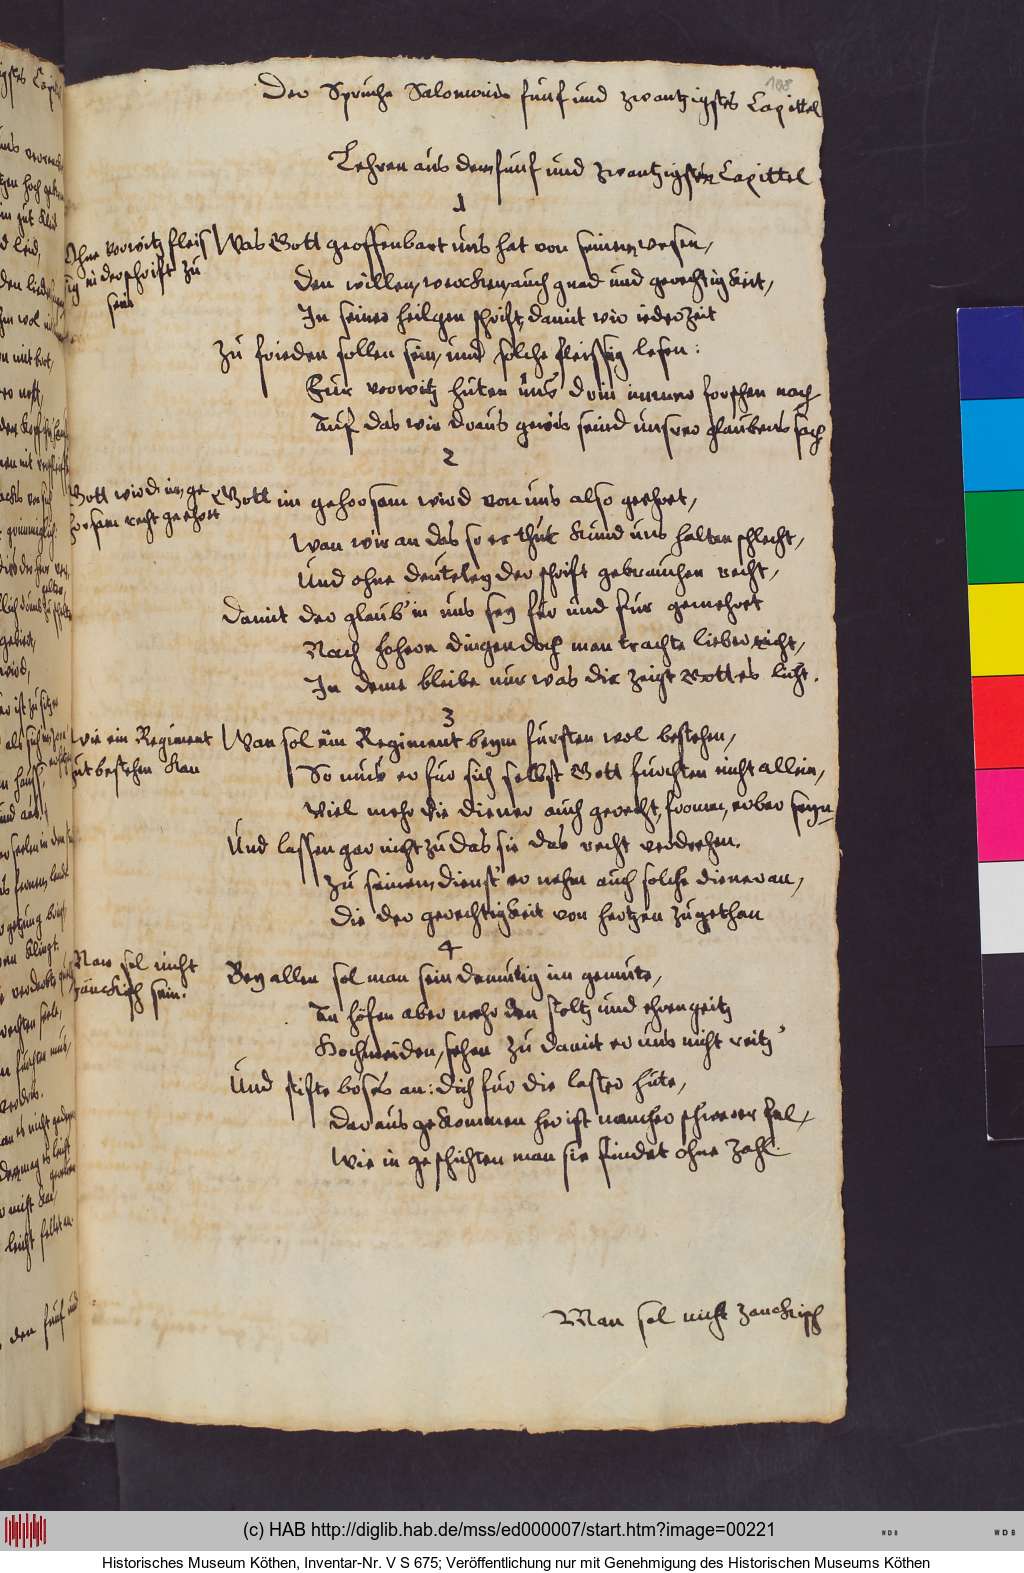 108
Der Sprüche Salomonis fünf und zwantzigstes Capittel
Lehren aus dem fünf und zwantzigsten Capittel
1
Ohne vorwitz fleis
sig in der schrift zu
sein
Was Gott geoffenbart uns hat von seinem wesen,
Den willen, wercken, auch gnad und gerechtigkeit,
In seiner heilgen schrift, damit wir iederzeit
Zu frieden sollen sein, und solche fleissig lesen:
Für vorwitz hüten uns drin immer forschen nach
Auf das wir draus gewis seind unsrer glaubens sach
2
Gott wird im ge
horsam recht geehret
Gott im gehorsam wird von uns also geehret,
Wan wir an das so er thut kund uns halten schlecht,
Und ohne deuteley der schrift gebrauchen recht,
Damit der glaub' in uns sey für und für gemehret
Nach hohern dingen doch man trachte lieber nicht,
In deme bleibe nur was dir zeigt Gottes licht.
3
Wie ein Regiment
gut bestehen kan
Wan sol ein Regiment beym fürsten wol bestehen,
So mus er für sich selbst Gott fürchten nicht allein,
Viel mehr die diener auch gerecht, from, erbar seyn
Und lassen gar nicht zu das sie das recht verdrehen.
Zu seinem dienst' er nehm auch solche diener an,
Die der gerechtigkeit von hertzen zugethan
4
Man sol nicht
zänckisch sein.
Bey allen sol man sein demütig im gemüte,
An höfen aber mehr den stoltz und ehrengeitz
Hochmeiden, sehen zu damit er uns nicht reitz'
Und stifte böses an: dich für die laster hüte,
Daraus gekommen her ist mancher schwerer fal,
Wie in geschichten man sie findet ohne zahl.
Man sol nicht zanckisch
(c) HAB http://diglib.hab.de/mss/ed000007/start.htm?image=00221
WDB
WDB
Historisches Museum Köthen, Inventar-Nr. V S 675; Veröffentlichung nur mit Genehmigung des Historischen Museums Köthen